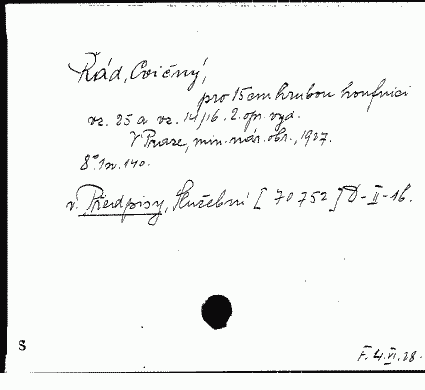 Řád, Cvičný,
pro 15 cm hrubou houfnici
vz. 25 a vz. 14/16. 2. opr. vyd.
V Praze, min. nár. obr., 1927.
8°. 140.
v. Předpisy, Služební [70752] D-II-16.
S
F. 4.VI.28.